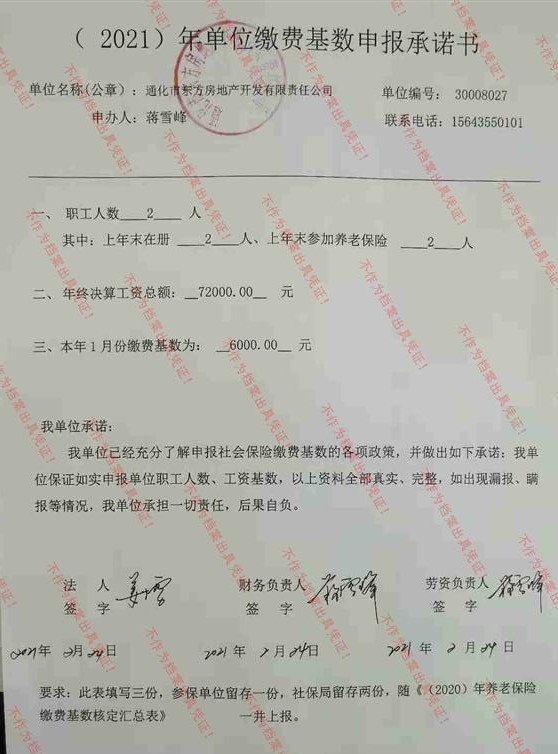 （ 2021）年单位缴费基数申报承诺书
单位名称(公章)：通化市东方房地产开发有限责任公司 单位编号： 30008027
申办人：蒋雪峰 联系电话：15643550101
一、 职工人数____2____ 人
其中：上年末在册 ____2____人、上年末参加养老保险 ____2____人
二、年终决算工资总额：__72000.00__ 元
三、本年1月份缴费基数为： __6000.00__ 元
我单位承诺：
我单位已经充分了解申报社会保险缴费基数的各项政策，并做出如下承诺：我单
位保证如实申报单位职工人数、工资基数，以上资料全部真实、完整，如出现漏报、瞒
报等情况，我单位承担一切责任，后果自负。
法 人 财务负责人 劳资负责人
签 字 签 字 签 字
2021年 2月24日 2021 年 2 月24日 2021 年 2 月 24 日
要求：此表填写三份，参保单位留存一份，社保局留存两份，随《（2020）年养老保险
缴费基数核定汇总表》 一并上报。
不作为档案出具凭证！